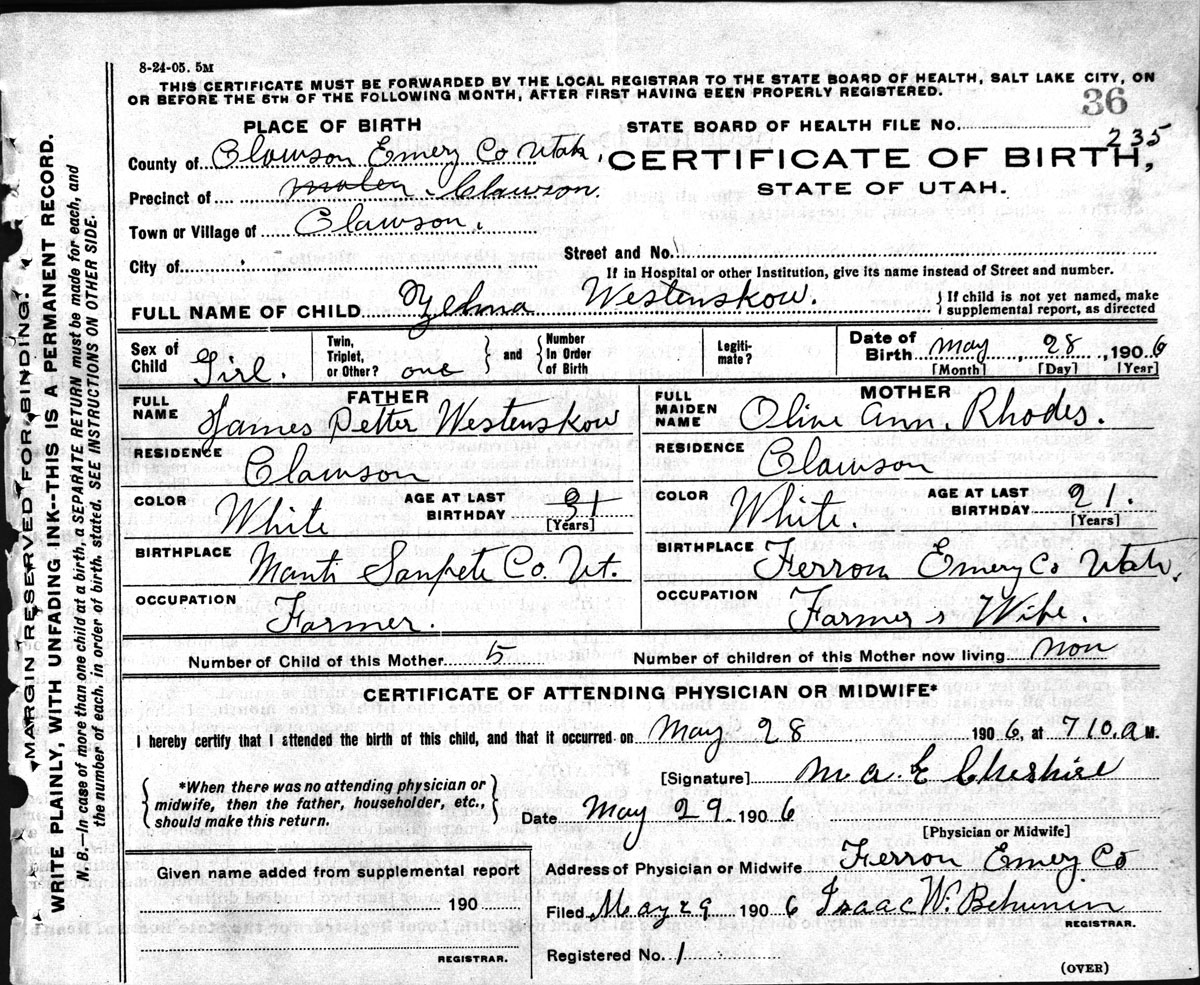 8-24-05. 5M
THIS CERTIFICATE MUST BE FORWARDED BY THE LOCAL REGISTRAR TO THE STATE BOARD OF HEALTH, SALT LAKE CITY, ON
OR BEFORE THE 5TH OF THE FOLLOWING MONTH, AFTER FIRST HAVING BEEN PROPERLY REGISTERED.
36
PLACE OF BIRTH
STATE BOARD OF HEALTH FILE No.
235
County of Clawson Emery Co Utah
CERTIFICATE OF BIRTH,
STATE OF UTAH.
Precinct of Molen. Clawson.
Town or Village of Clawson.
City of
Street and No.
If in Hospital or other Institution, give its name instead of Street and number.
FULL NAME OF CHILD Zelma Westenskow.
{ If child is not yet named, make
supplemental report, as directed
Sex of Child Girl.
Twin, Triplet, or Other? one } and { Number In Order of Birth
Legiti-mate?
Date of Birth May, 28, 1906
[Month] [Day] [Year]
FATHER
FULL NAME James Petter Westenskow
RESIDENCE Clawson
COLOR White AGE AT LAST BIRTHDAY 31
[Years]
BIRTHPLACE Manti Sanpete Co. Ut.
OCCUPATION Farmer.
MOTHER
FULL MAIDEN NAME Olive Ann. Rhodes.
RESIDENCE Clawson
COLOR White. AGE AT LAST BIRTHDAY 21.
[Years]
BIRTHPLACE Ferron Emery Co Utah.
OCCUPATION Farmer s Wife.
Number of Child of this Mother 5
Number of children of this Mother now living non
CERTIFICATE OF ATTENDING PHYSICIAN OR MIDWIFE*
I hereby certify that I attended the birth of this child, and that it occurred on May 28 1906, at 7 10. a M.
{ *When there was no attending physician or
midwife, then the father, householder, etc.,
should make this return. }
[Signature] M. A. E Cheshire
Date May 29 1906
[Physician or Midwife]
Address of Physician or Midwife Ferron Emery Co
Filed May 29 1906 Isaac W. Behunin
REGISTRAR.
Registered No. 1
Given name added from supplemental report
190
REGISTRAR.
(OVER)
MARGIN RESERVED FOR BINDING.
WRITE PLAINLY, WITH UNFADING INK--THIS IS A PERMANENT RECORD.
N. B.—In case of more than one child at a birth, a SEPARATE RETURN must be made for each, and
the number of each, in order of birth, stated. SEE INSTRUCTIONS ON OTHER SIDE.